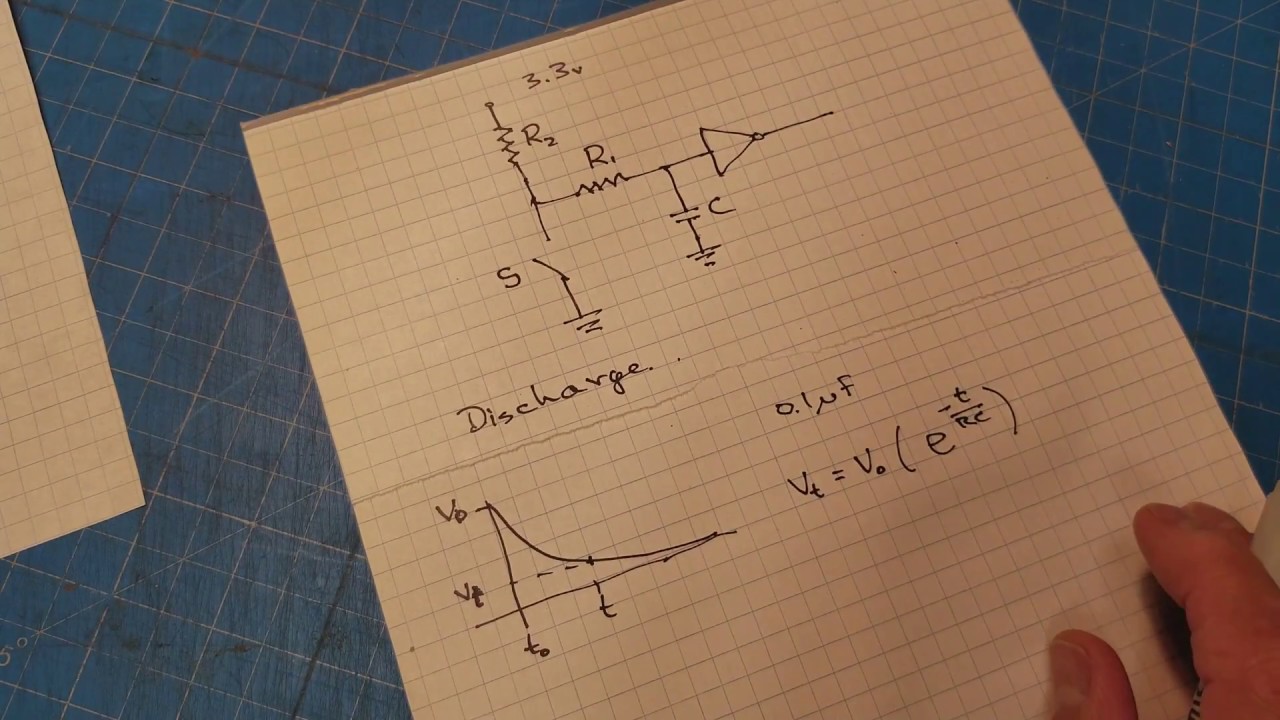 3.3v
R2
R1
C
S
Discharge.
0.1µF
Vt = V0 ( e^-t/RC )
V0
Vt
t
t0